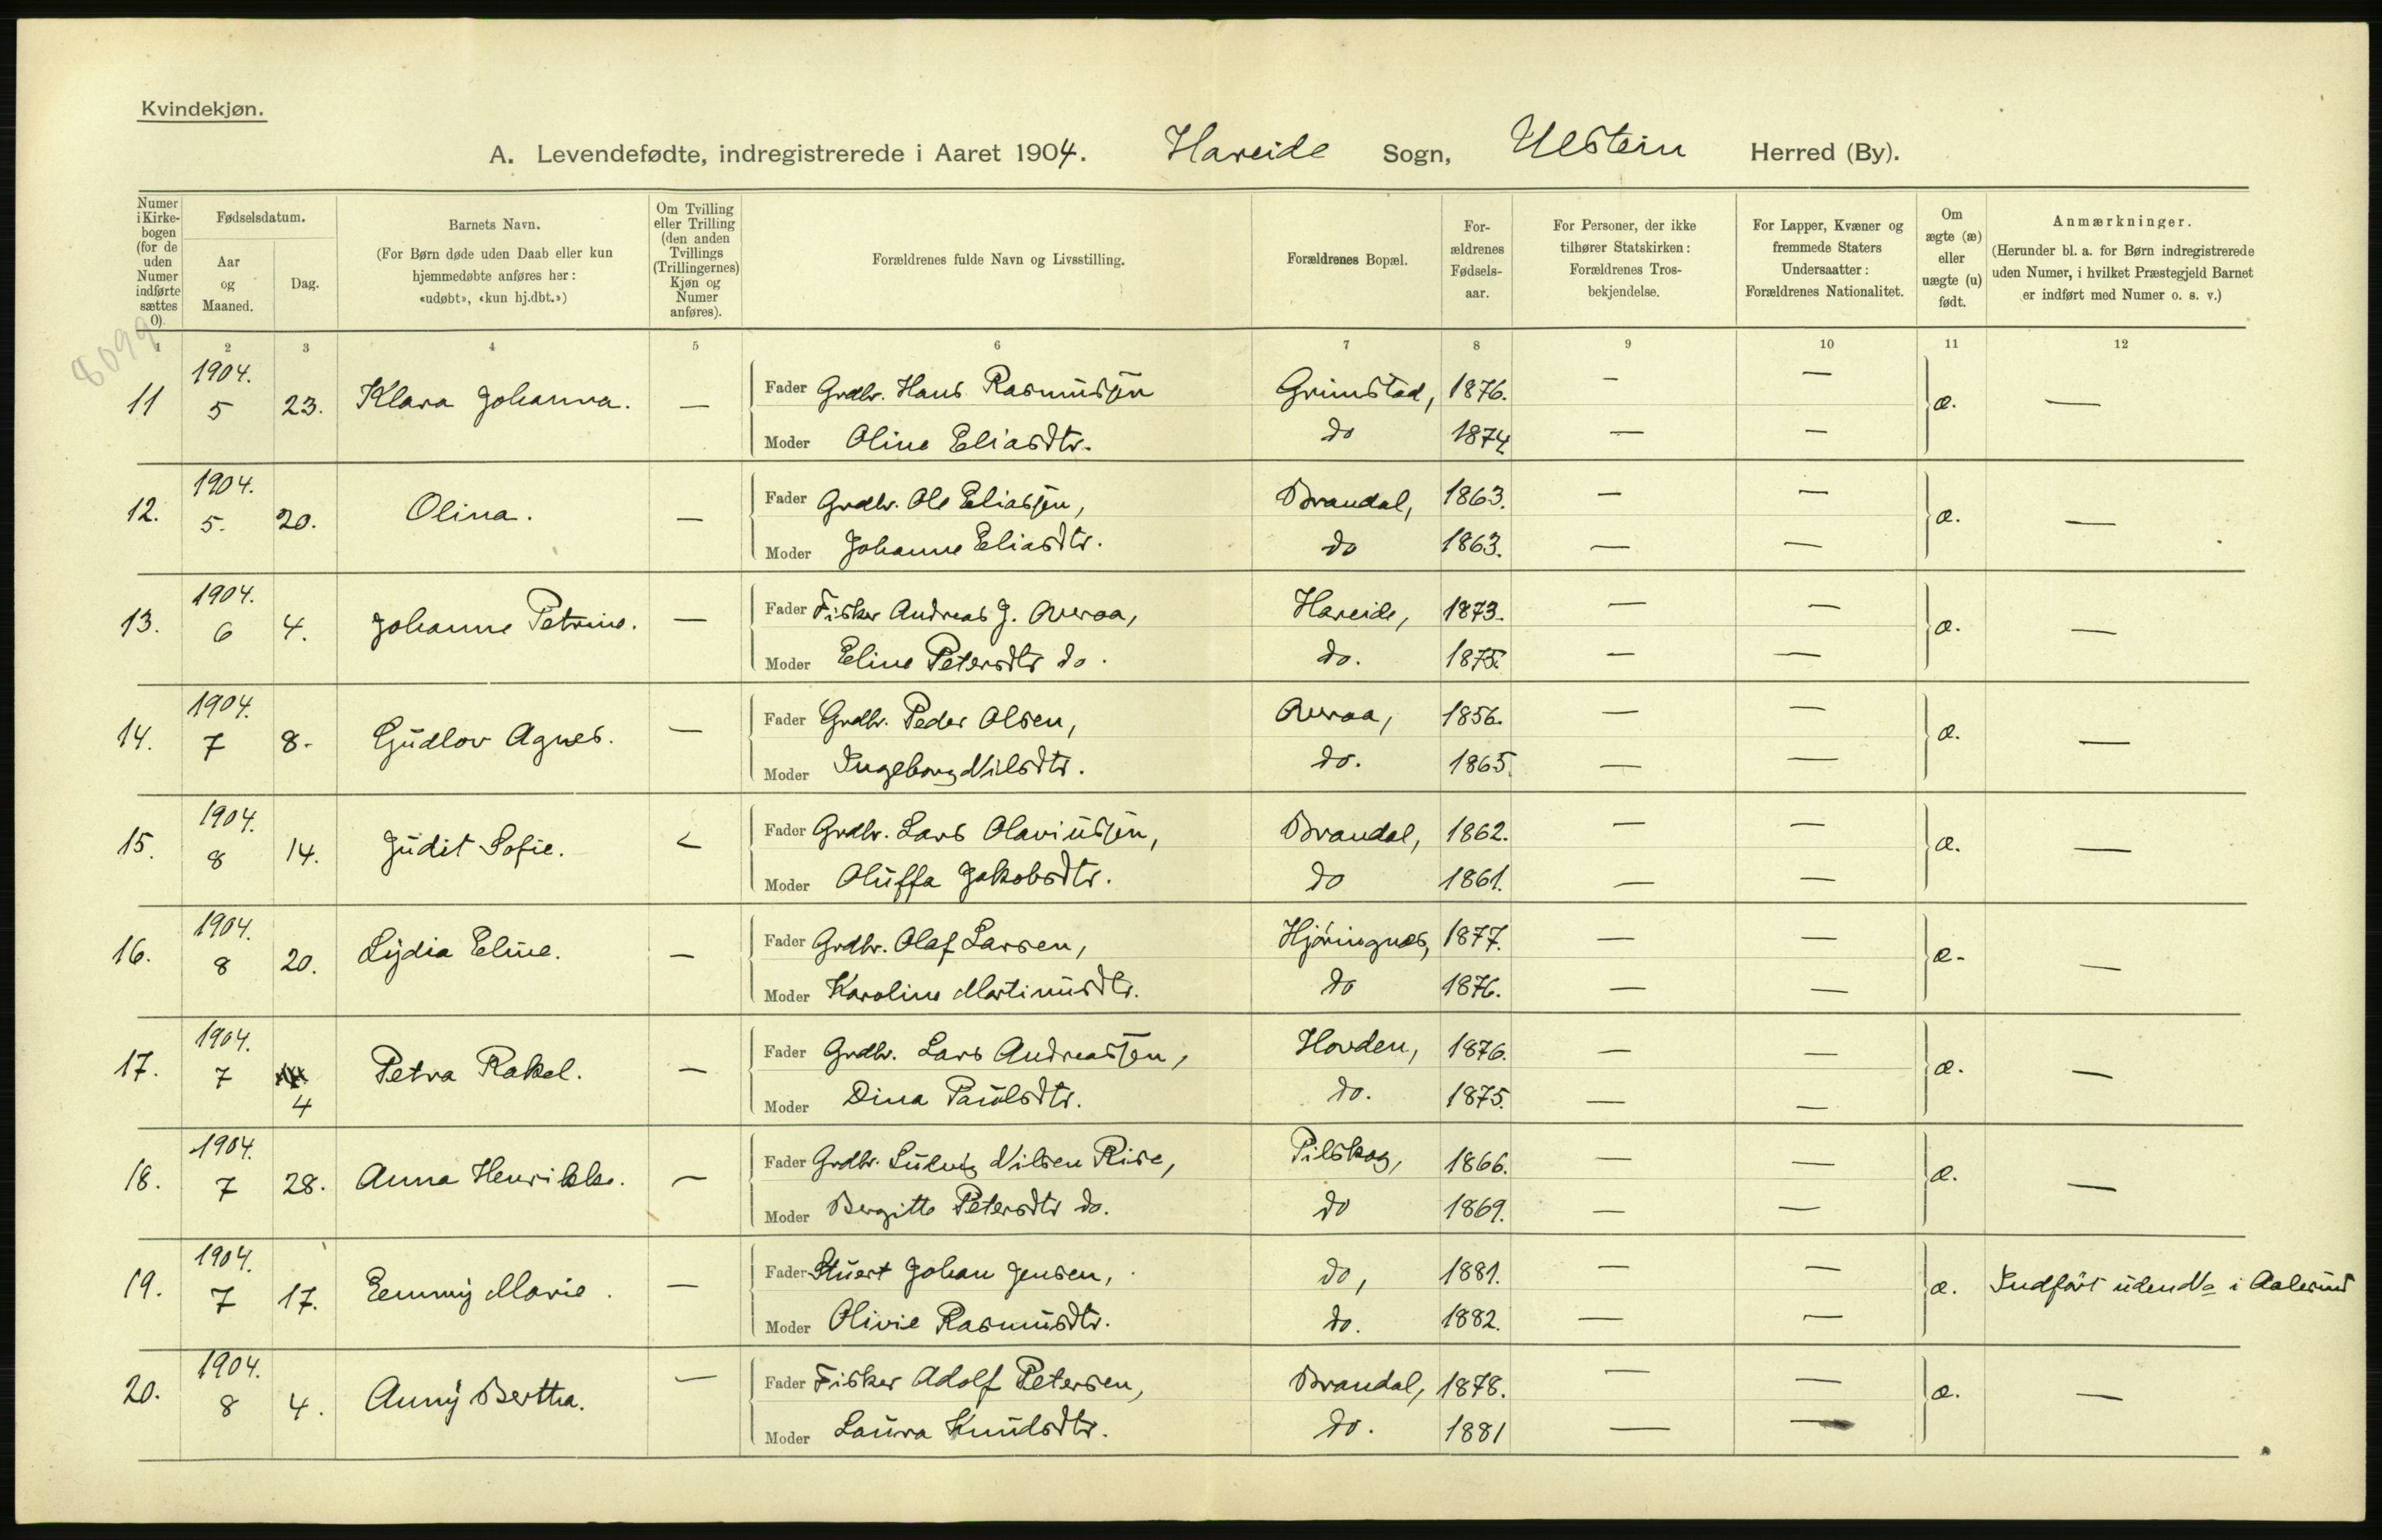 Kvindekjøn.
A. Levendefødte, indregistrerede i Aaret 1904. Hareide Sogn, Ulstein Herred (By).
Numer i Kirkebogen (for de uden Numer indførte sættes 0).
Fødselsdatum.
Aar og Maaned.
Dag.
Barnets Navn.
(For Børn døde uden Daab eller kun hjemmedøbte anføres her: «udøbt», «kun hj.dbt.»)
Om Tvilling eller Trilling (den anden Tvillings (Trillingernes) Kjøn og Numer anføres).
Forældrenes fulde Navn og Livsstilling.
Forældrenes Bopæl.
Forældrenes Fødselsaar.
For Personer, der ikke tilhører Statskirken: Forældrenes Trosbekjendelse.
For Lapper, Kvæner og fremmede Staters Undersaatter: Forældrenes Nationalitet.
Om ægte (æ) eller uægte (u) født.
Anmærkninger.
(Herunder bl. a. for Børn indregistrerede uden Numer, i hvilket Præstegjeld Barnet er indført med Numer o. s. v.)
8099
1 2 3 4 5 6 7 8 9 10 11 12
11 1904. 5 23. Klara Johanna. — Fader Grdbr. Hans Rasmussen Grimstad, 1876. — — æ. —
Moder Oline Eliasdtr. do 1874 — —
12. 1904. 5. 20. Olina. — Fader Grdbr. Ole Eliassen, Brandal, 1863. — — æ. —
Moder Johanne Eliasdtr. do 1863. — —
13. 1904. 6 4. Johanne Petrine. — Fader Fisker Andreas J. Overaa, Hareide, 1873. — — æ. —
Moder Eline Petersdtr do. do. 1875. — —
14. 1904. 7 8. Gudlov Agnes. — Fader Grdbr. Peder Olsen, Overaa, 1856. — — æ. —
Moder Ingeborg Nilsdtr. do. 1865. — —
15. 1904. 8 14. Judit Sofie. — Fader Grdbr. Lars Olariussen, Brandal, 1862. — — æ. —
Moder Oluffa Jakobsdtr. do 1861. — —
16. 1904. 8 20. Lydia Eline. — Fader Grdbr. Olaf Larsen, Hjøringnæs, 1877. — — æ. —
Moder Karoline Martinusdtr. do 1876. — —
17. 1904. 7 4 Petra Rakel. — Fader Grdbr. Lars Andreassen, Hovden, 1876. — — æ. —
Moder Dina Paulsdtr. do. 1875. — —
18. 1904. 7 28. Anna Henrikke. — Fader Grdbr. Ludvig Nilsen Rise, Pilskog, 1866. — — æ. —
Moder Bergitte Petersdtr do. do 1869. — —
19. 1904. 7 17. Emmy Marie. — Fader Stuert Johan Jensen, do, 1881. — — æ. Indført uden No i Aalesund
Moder Olivie Rasmusdtr. do. 1882. — —
20. 1904. 8 4. Anny Bertha. — Fader Fisker Adolf Petersen, Brandal, 1878. — — æ. —
Moder Laura Knudsdtr. do. 1881 — —